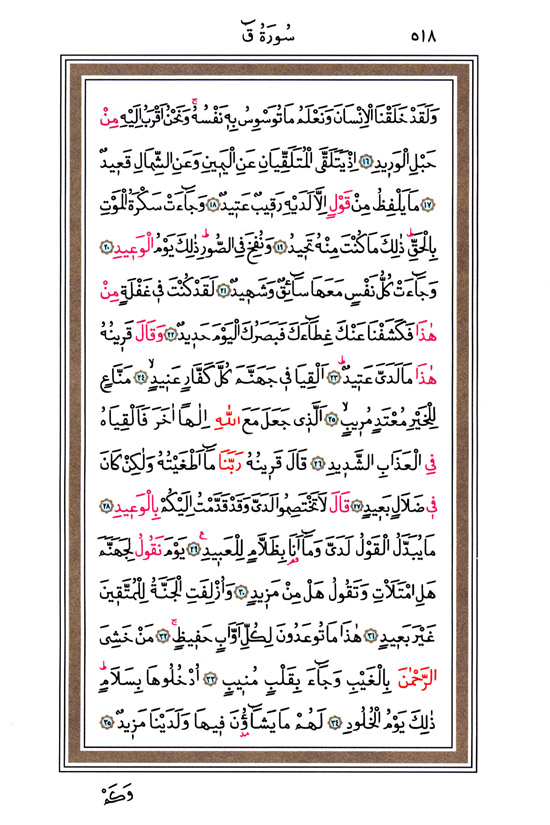 ٥١٨ سُورَةُ قٓ
وَلَقَدْ خَلَقْنَا الْاِنْسَانَ وَنَعْلَمُ مَا تُوَسْوِسُ بِهٖ نَفْسُهُۚ وَنَحْنُ اَقْرَبُ اِلَيْهِ مِنْ
حَبْلِ الْوَرٖيدِ ﴿١٦﴾ اِذْ يَتَلَقَّى الْمُتَلَقِّيَانِ عَنِ الْيَمٖينِ وَعَنِ الشِّمَالِ قَعٖيدٌ
﴿١٧﴾ مَا يَلْفِظُ مِنْ قَوْلٍ اِلَّا لَدَيْهِ رَقٖيبٌ عَتٖيدٌ ﴿١٨﴾ وَجَٓاءَتْ سَكْرَةُ الْمَوْتِ
بِالْحَقِّؕ ذٰلِكَ مَا كُنْتَ مِنْهُ تَحٖيدُ ﴿١٩﴾ وَنُفِخَ فِي الصُّورِؕ ذٰلِكَ يَوْمُ الْوَعٖيدِ ﴿٢٠﴾
وَجَٓاءَتْ كُلُّ نَفْسٍ مَعَهَا سَٓائِقٌ وَشَهٖيدٌ ﴿٢١﴾ لَقَدْ كُنْتَ فٖي غَفْلَةٍ مِنْ
هٰذَا فَكَشَفْنَا عَنْكَ غِطَٓاءَكَ فَبَصَرُكَ الْيَوْمَ حَدٖيدٌ ﴿٢٢﴾ وَقَالَ قَرٖينُهُ
هٰذَا مَا لَدَيَّ عَتٖيدٌؕ ﴿٢٣﴾ اَلْقِيَا فٖي جَهَنَّمَ كُلَّ كَفَّارٍ عَنٖيدٍۙ ﴿٢٤﴾ مَنَّاعٍ
لِلْخَيْرِ مُعْتَدٍ مُرٖيبٍۙ ﴿٢٥﴾ اَلَّذٖي جَعَلَ مَعَ اللّٰهِ اِلٰهًا اٰخَرَ فَاَلْقِيَاهُ
فِي الْعَذَابِ الشَّدٖيدِ ﴿٢٦﴾ قَالَ قَرٖينُهُ رَبَّنَا مَٓا اَطْغَيْتُهُ وَلٰكِنْ كَانَ
فٖي ضَلَالٍ بَعٖيدٍ ﴿٢٧﴾ قَالَ لَا تَخْتَصِمُوا لَدَيَّ وَقَدْ قَدَّمْتُ اِلَيْكُمْ بِالْوَعٖيدِ ﴿٢٨﴾
مَا يُبَدَّلُ الْقَوْلُ لَدَيَّ وَمَٓا اَنَا۬ بِظَلَّامٍ لِلْعَبٖيدِ ﴿٢٩﴾ يَوْمَ نَقُولُ لِجَهَنَّمَ
هَلِ امْتَلَاْتِ وَتَقُولُ هَلْ مِنْ مَزٖيدٍ ﴿٣٠﴾ وَاُزْلِفَتِ الْجَنَّةُ لِلْمُتَّقٖينَ
غَيْرَ بَعٖيدٍ ﴿٣١﴾ هٰذَا مَا تُوعَدُونَ لِكُلِّ اَوَّابٍ حَفٖيظٍۚ ﴿٣٢﴾ مَنْ خَشِيَ
الرَّحْمٰنَ بِالْغَيْبِ وَجَٓاءَ بِقَلْبٍ مُنٖيبٍ ﴿٣٣﴾ اُدْخُلُوهَا بِسَلَامٍؕ
ذٰلِكَ يَوْمُ الْخُلُودِ ﴿٣٤﴾ لَهُمْ مَا يَشَٓاؤُ۫نَ فٖيهَا وَلَدَيْنَا مَزٖيدٌ ﴿٣٥﴾
وَكَمْ